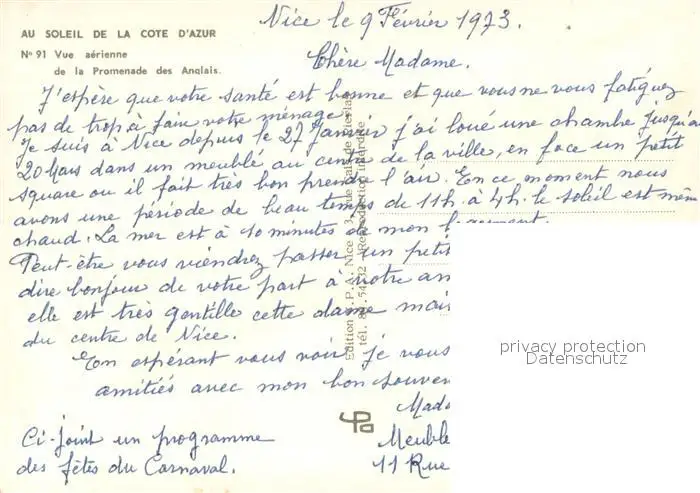 AU SOLEIL DE LA COTE D'AZUR
N° 91 Vue aérienne
de la Promenade des Anglais.
Nice le 9 Février 1973.
Chère Madame.
J'espère que votre santé est bonne et que vous ne vous fatiguez
pas de trop à faire votre ménage.
Je suis à Nice depuis le 27 Janvier j'ai loué une chambre jusqu'au
20 Mars dans un meublé au centre de la ville, en face un petit
square ou il fait très bon prendre l'air. En ce moment nous
avons une période de beau temps de 11h. à 4h. le soleil est même
chaud. La mer est à 10 minutes de mon logement.
Peut-être vous viendrez passer un petit
dire bonjour de votre part à notre
elle est très gentille cette dame mais
du centre de Nice.
En espérant vous voir je vous
amitiés avec mon bon souven
Mada
Ci-joint un programme
des fêtes du Carnaval.
Meublé
11 Rue
privacy protection
Datenschutz